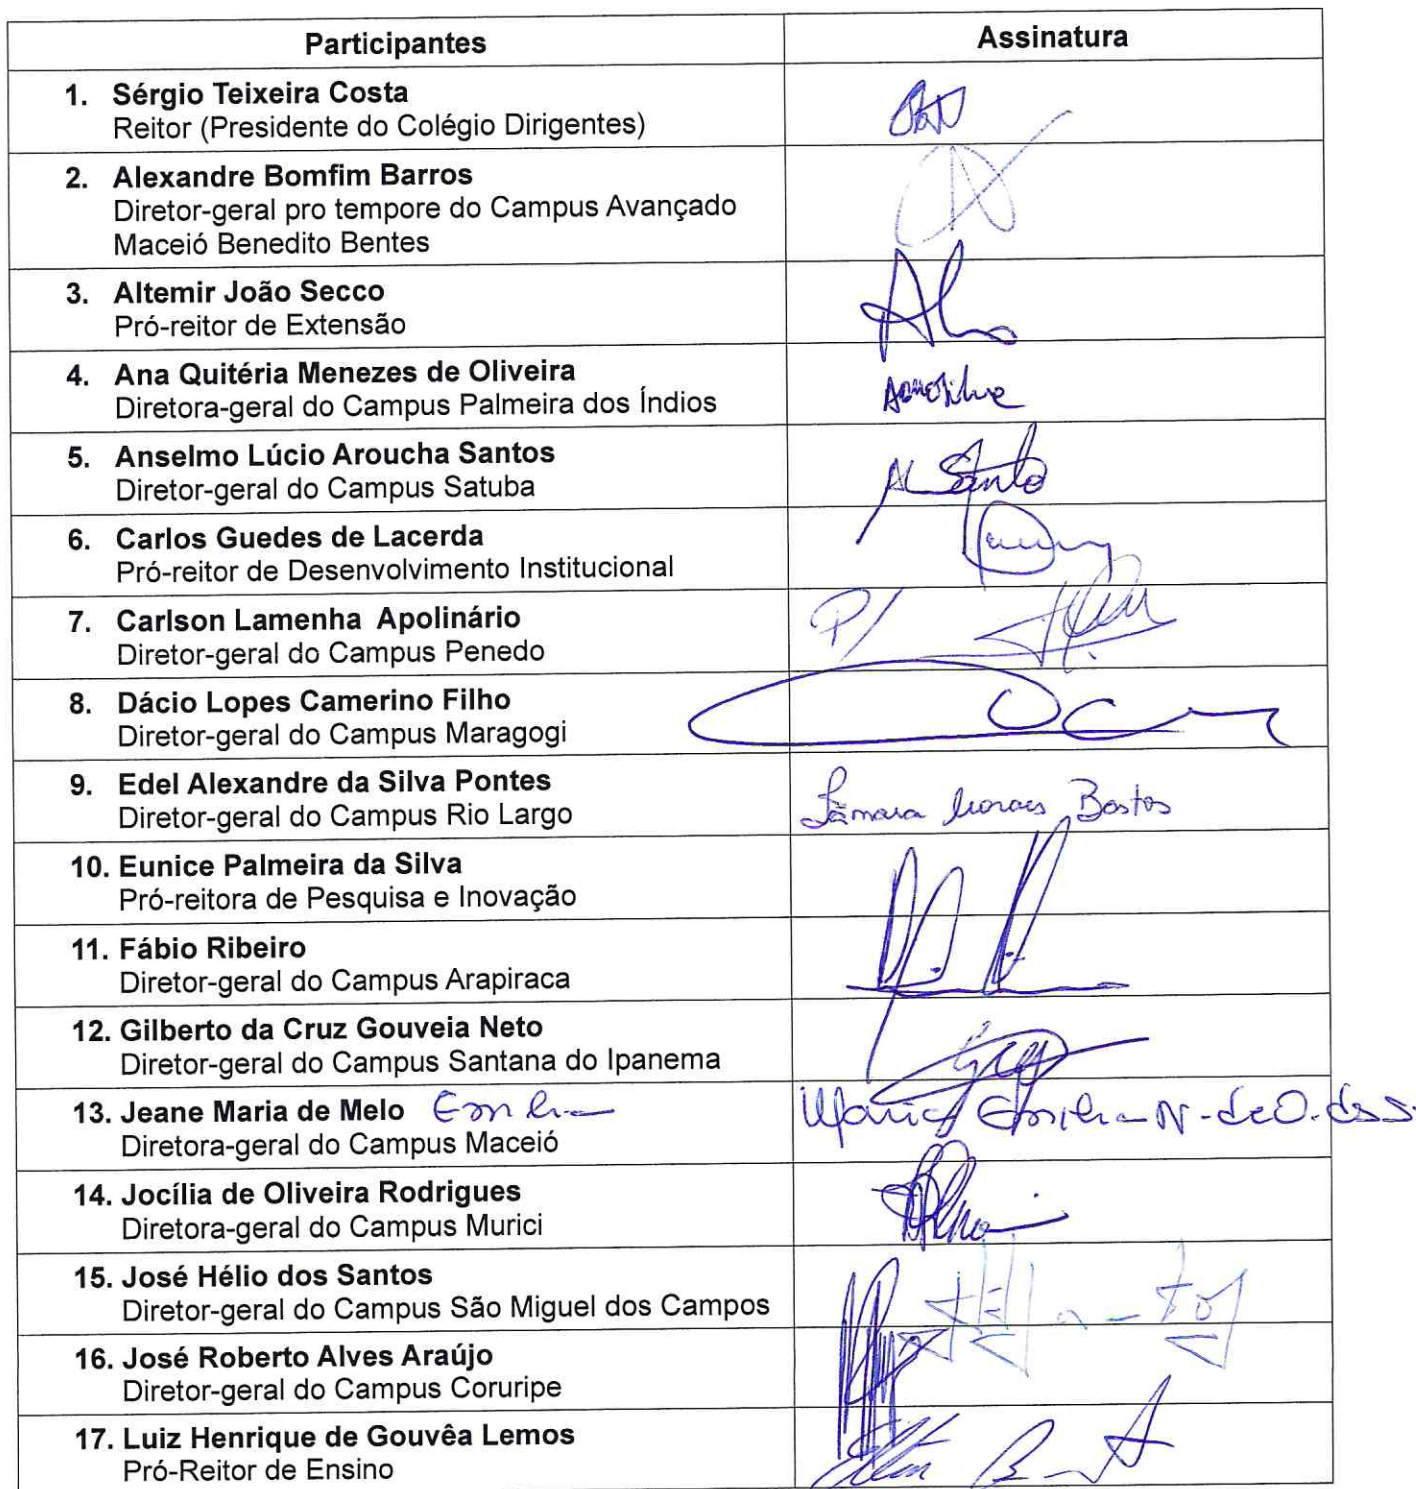 Participantes Assinatura
1. Sérgio Teixeira Costa
Reitor (Presidente do Colégio Dirigentes)
2. Alexandre Bomfim Barros
Diretor-geral pro tempore do Campus Avançado
Maceió Benedito Bentes
3. Altemir João Secco
Pró-reitor de Extensão
4. Ana Quitéria Menezes de Oliveira
Diretora-geral do Campus Palmeira dos Índios
5. Anselmo Lúcio Aroucha Santos
Diretor-geral do Campus Satuba
AL Santo
6. Carlos Guedes de Lacerda
Pró-reitor de Desenvolvimento Institucional
7. Carlson Lamenha Apolinário
Diretor-geral do Campus Penedo
P/
8. Dácio Lopes Camerino Filho
Diretor-geral do Campus Maragogi
9. Edel Alexandre da Silva Pontes
Diretor-geral do Campus Rio Largo
Sâmara Moraes Bastos
10. Eunice Palmeira da Silva
Pró-reitora de Pesquisa e Inovação
11. Fábio Ribeiro
Diretor-geral do Campus Arapiraca
12. Gilberto da Cruz Gouveia Neto
Diretor-geral do Campus Santana do Ipanema
13. Jeane Maria de Melo Emilia Maria Emilia N. de O. dos S.
Diretora-geral do Campus Maceió
14. Jocília de Oliveira Rodrigues
Diretora-geral do Campus Murici
15. José Hélio dos Santos
Diretor-geral do Campus São Miguel dos Campos
16. José Roberto Alves Araújo
Diretor-geral do Campus Coruripe
17. Luiz Henrique de Gouvêa Lemos
Pró-Reitor de Ensino